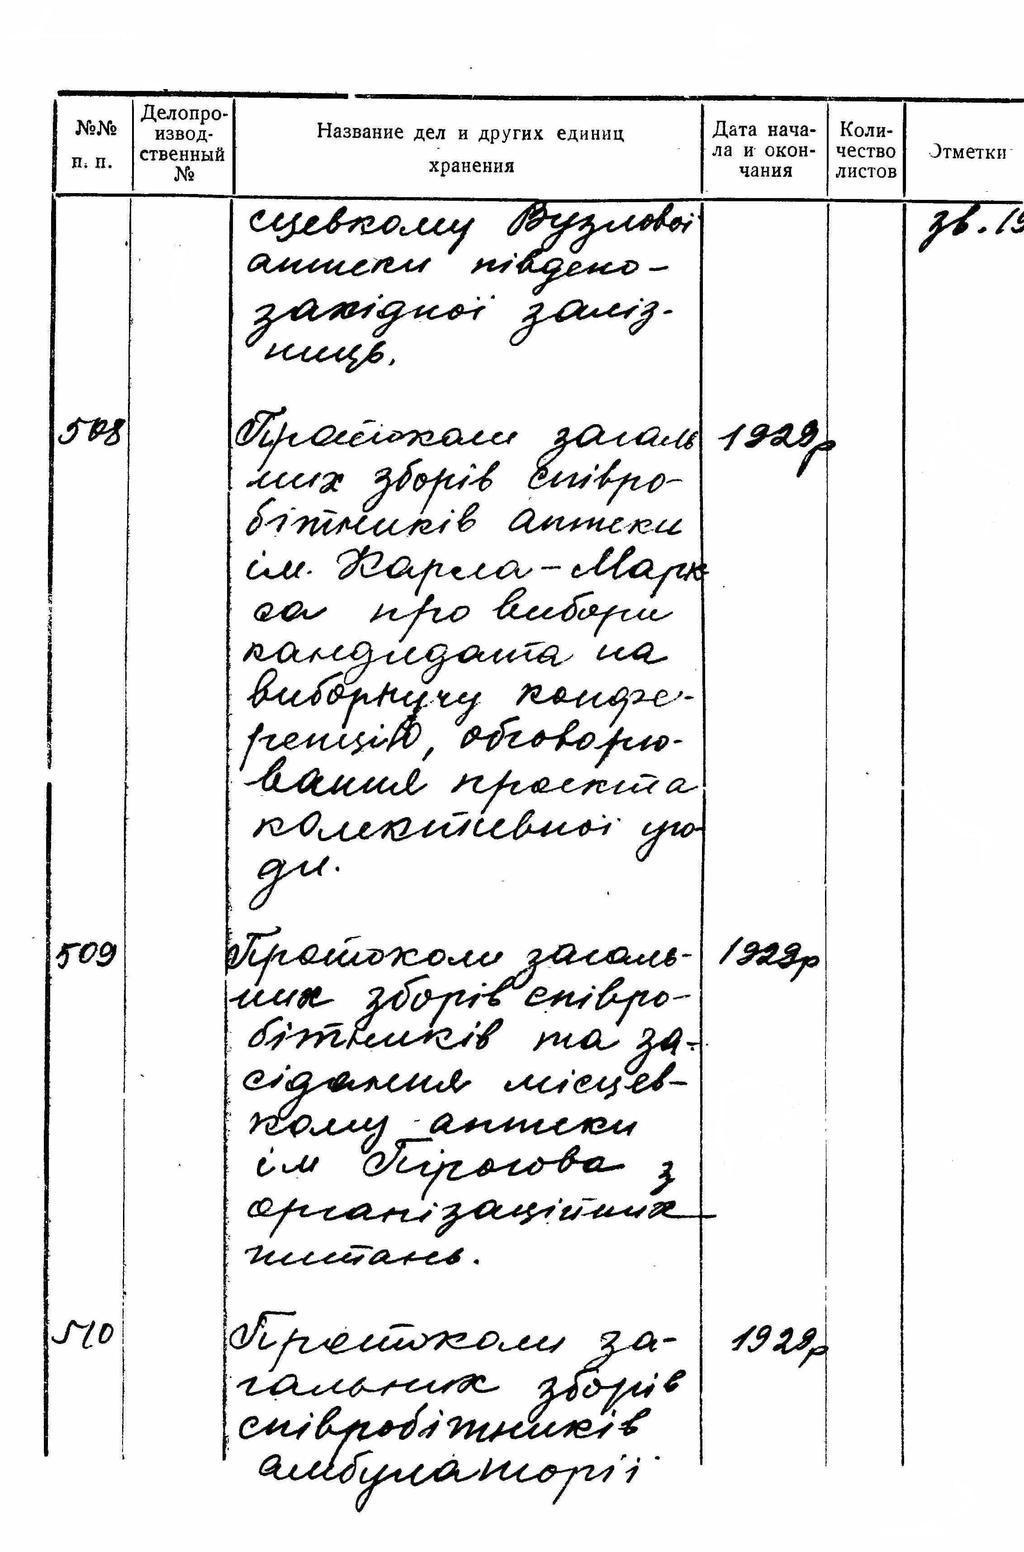 №№ п. п.
Делопро-
извод-
ственный
№
Название дел и других единиц
хранения
Дата нача-
ла и окон-
чания
Коли-
чество
листов
Отметки
сцевкому Вузлової
зв. 19
аптеки південо-
західної заліз-
ниць.
508
Протоколи загаль
1929р
них зборів співро-
бітників аптеки
ім. Карла-Марк-
са про вибори
кандидата на
виборчучу конфе-
ренцію, обговорю-
вання проекта
колективної уго-
ди.
509
Протоколи загаль-
1929р
них зборів співро-
бітників та за-
сідання місцев-
кому аптеки
ім Пірогова з
організаційних
питань.
510
Протоколи за-
1929р
гальних зборів
співробітників
амбулаторії